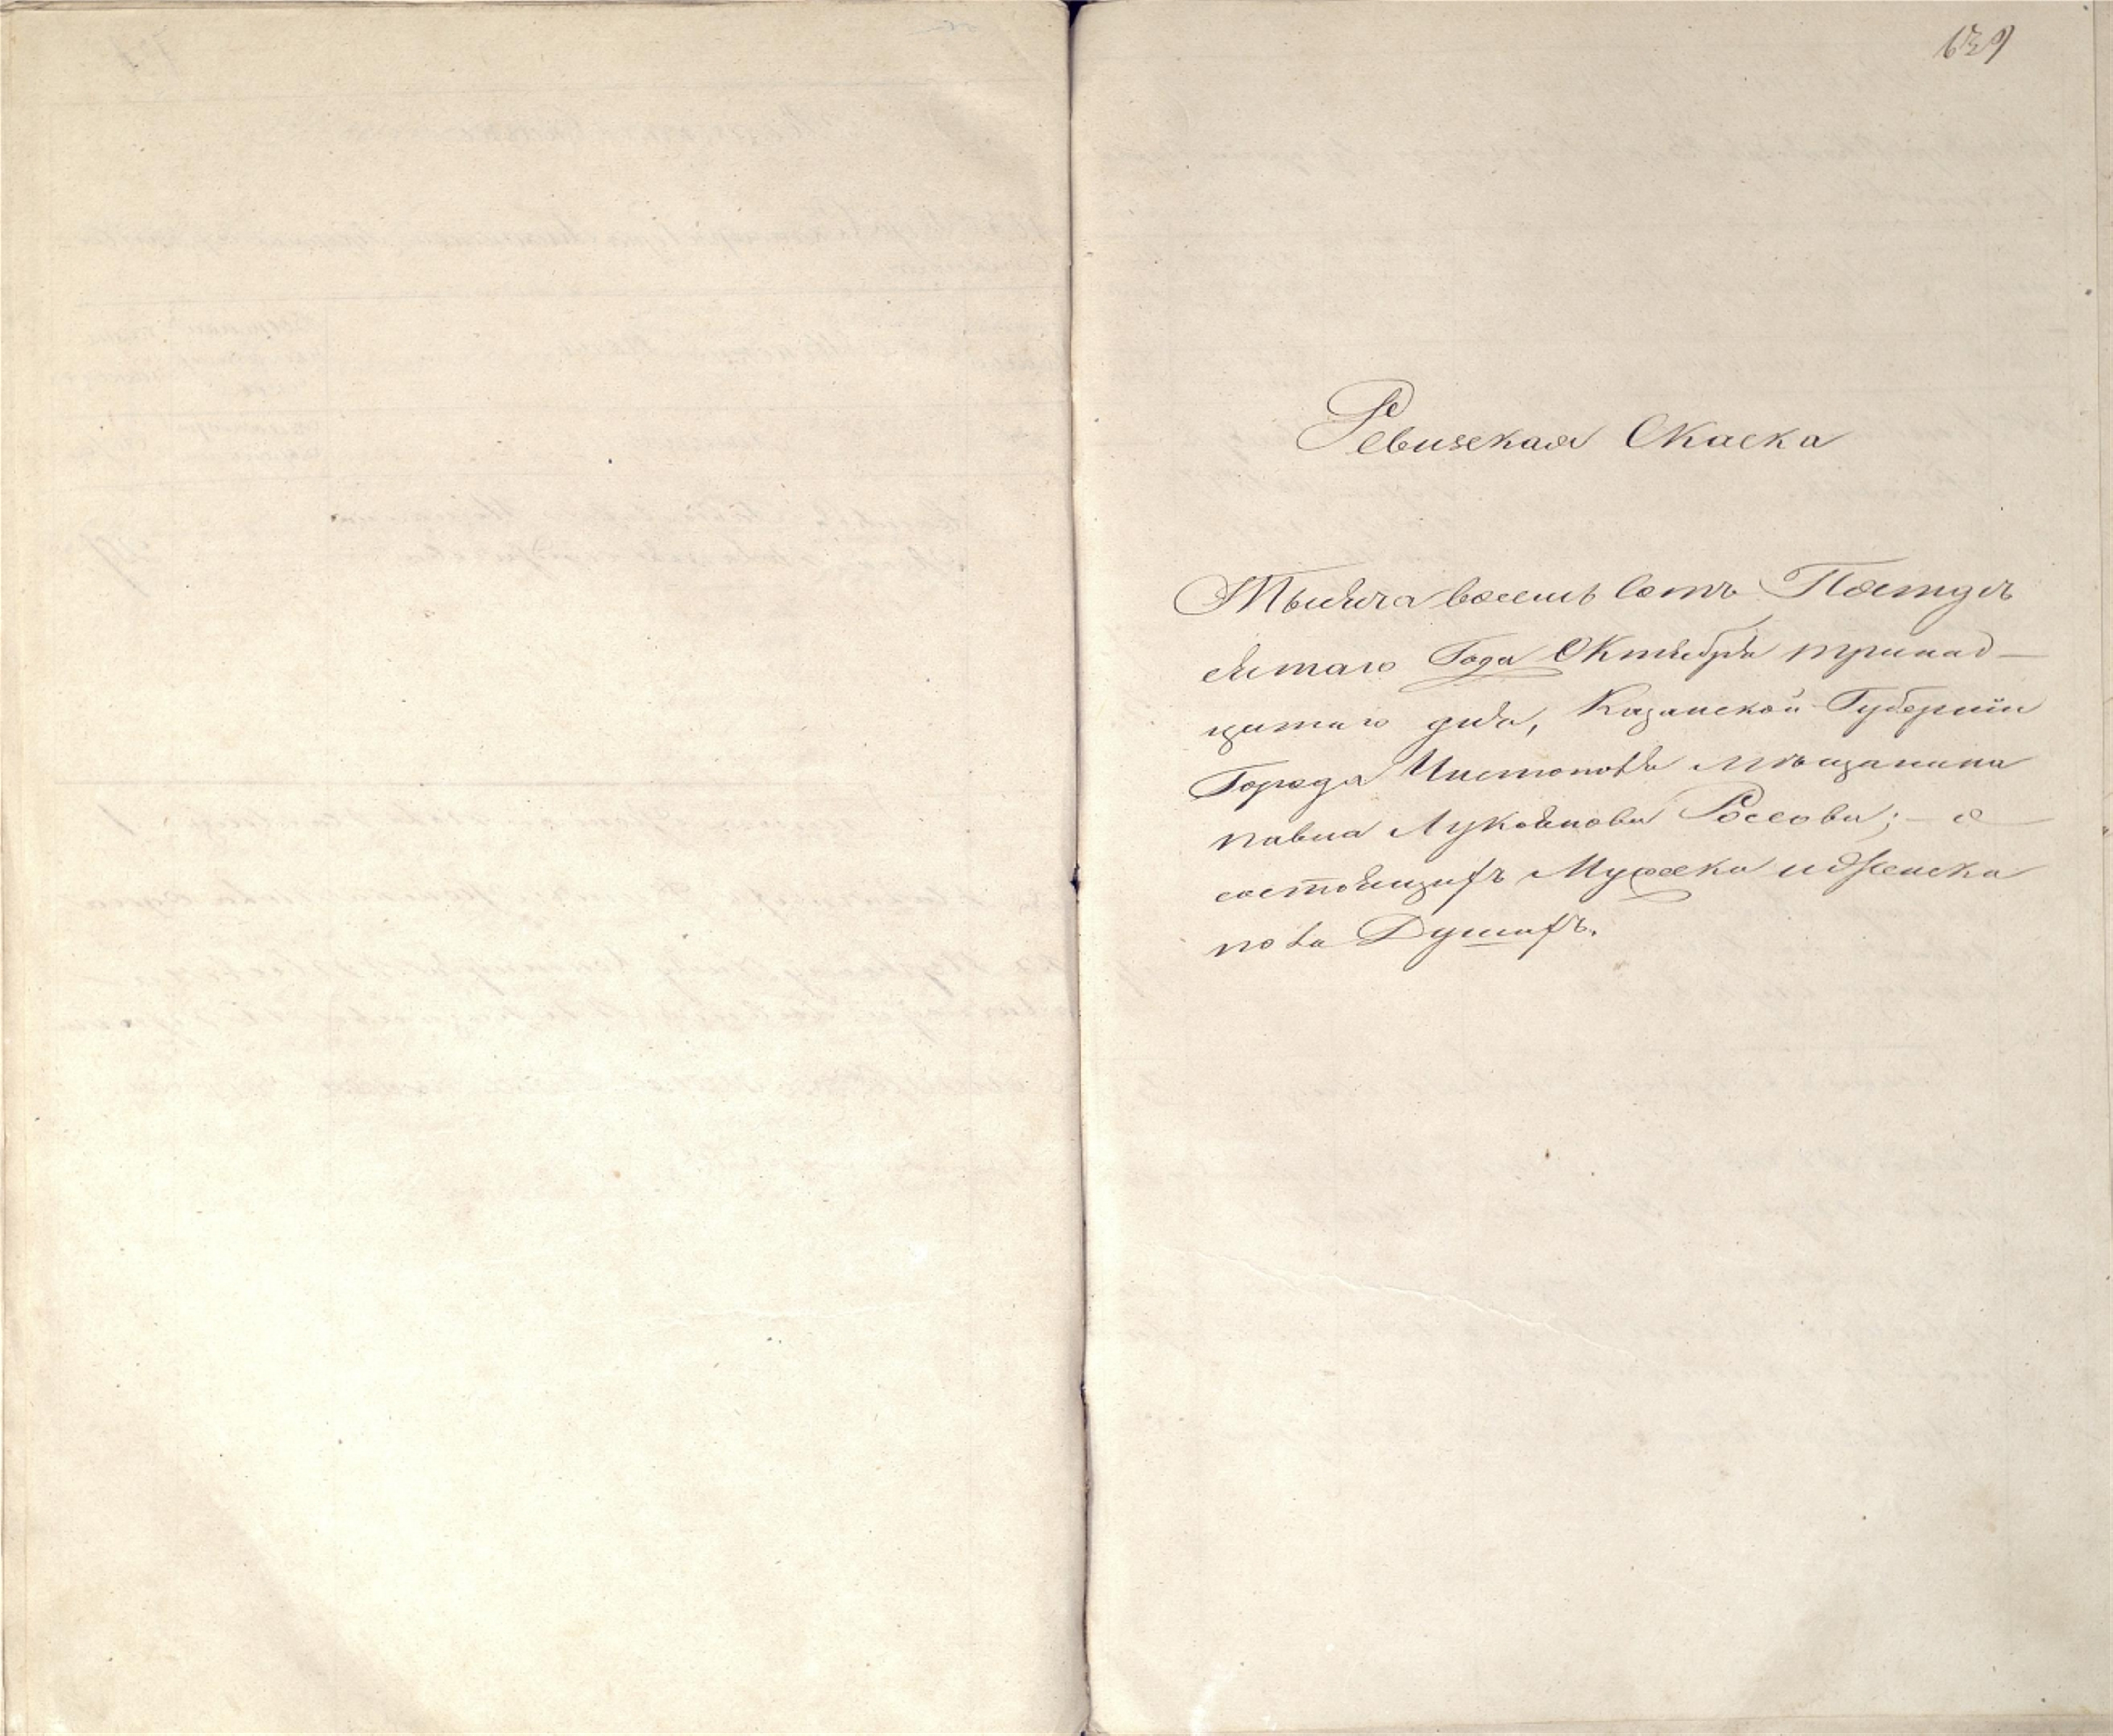 639
Ревизская Скаска
Тысяча восемь сотъ Пятдѣ
сятаго Года Октября тринад-
цатаго дня, Казанской Губерніи
Города Чистополя мѣщанина
павла Лукоянова Россова; - о
состоящихъ Мужска и Женска
пола Душахъ.